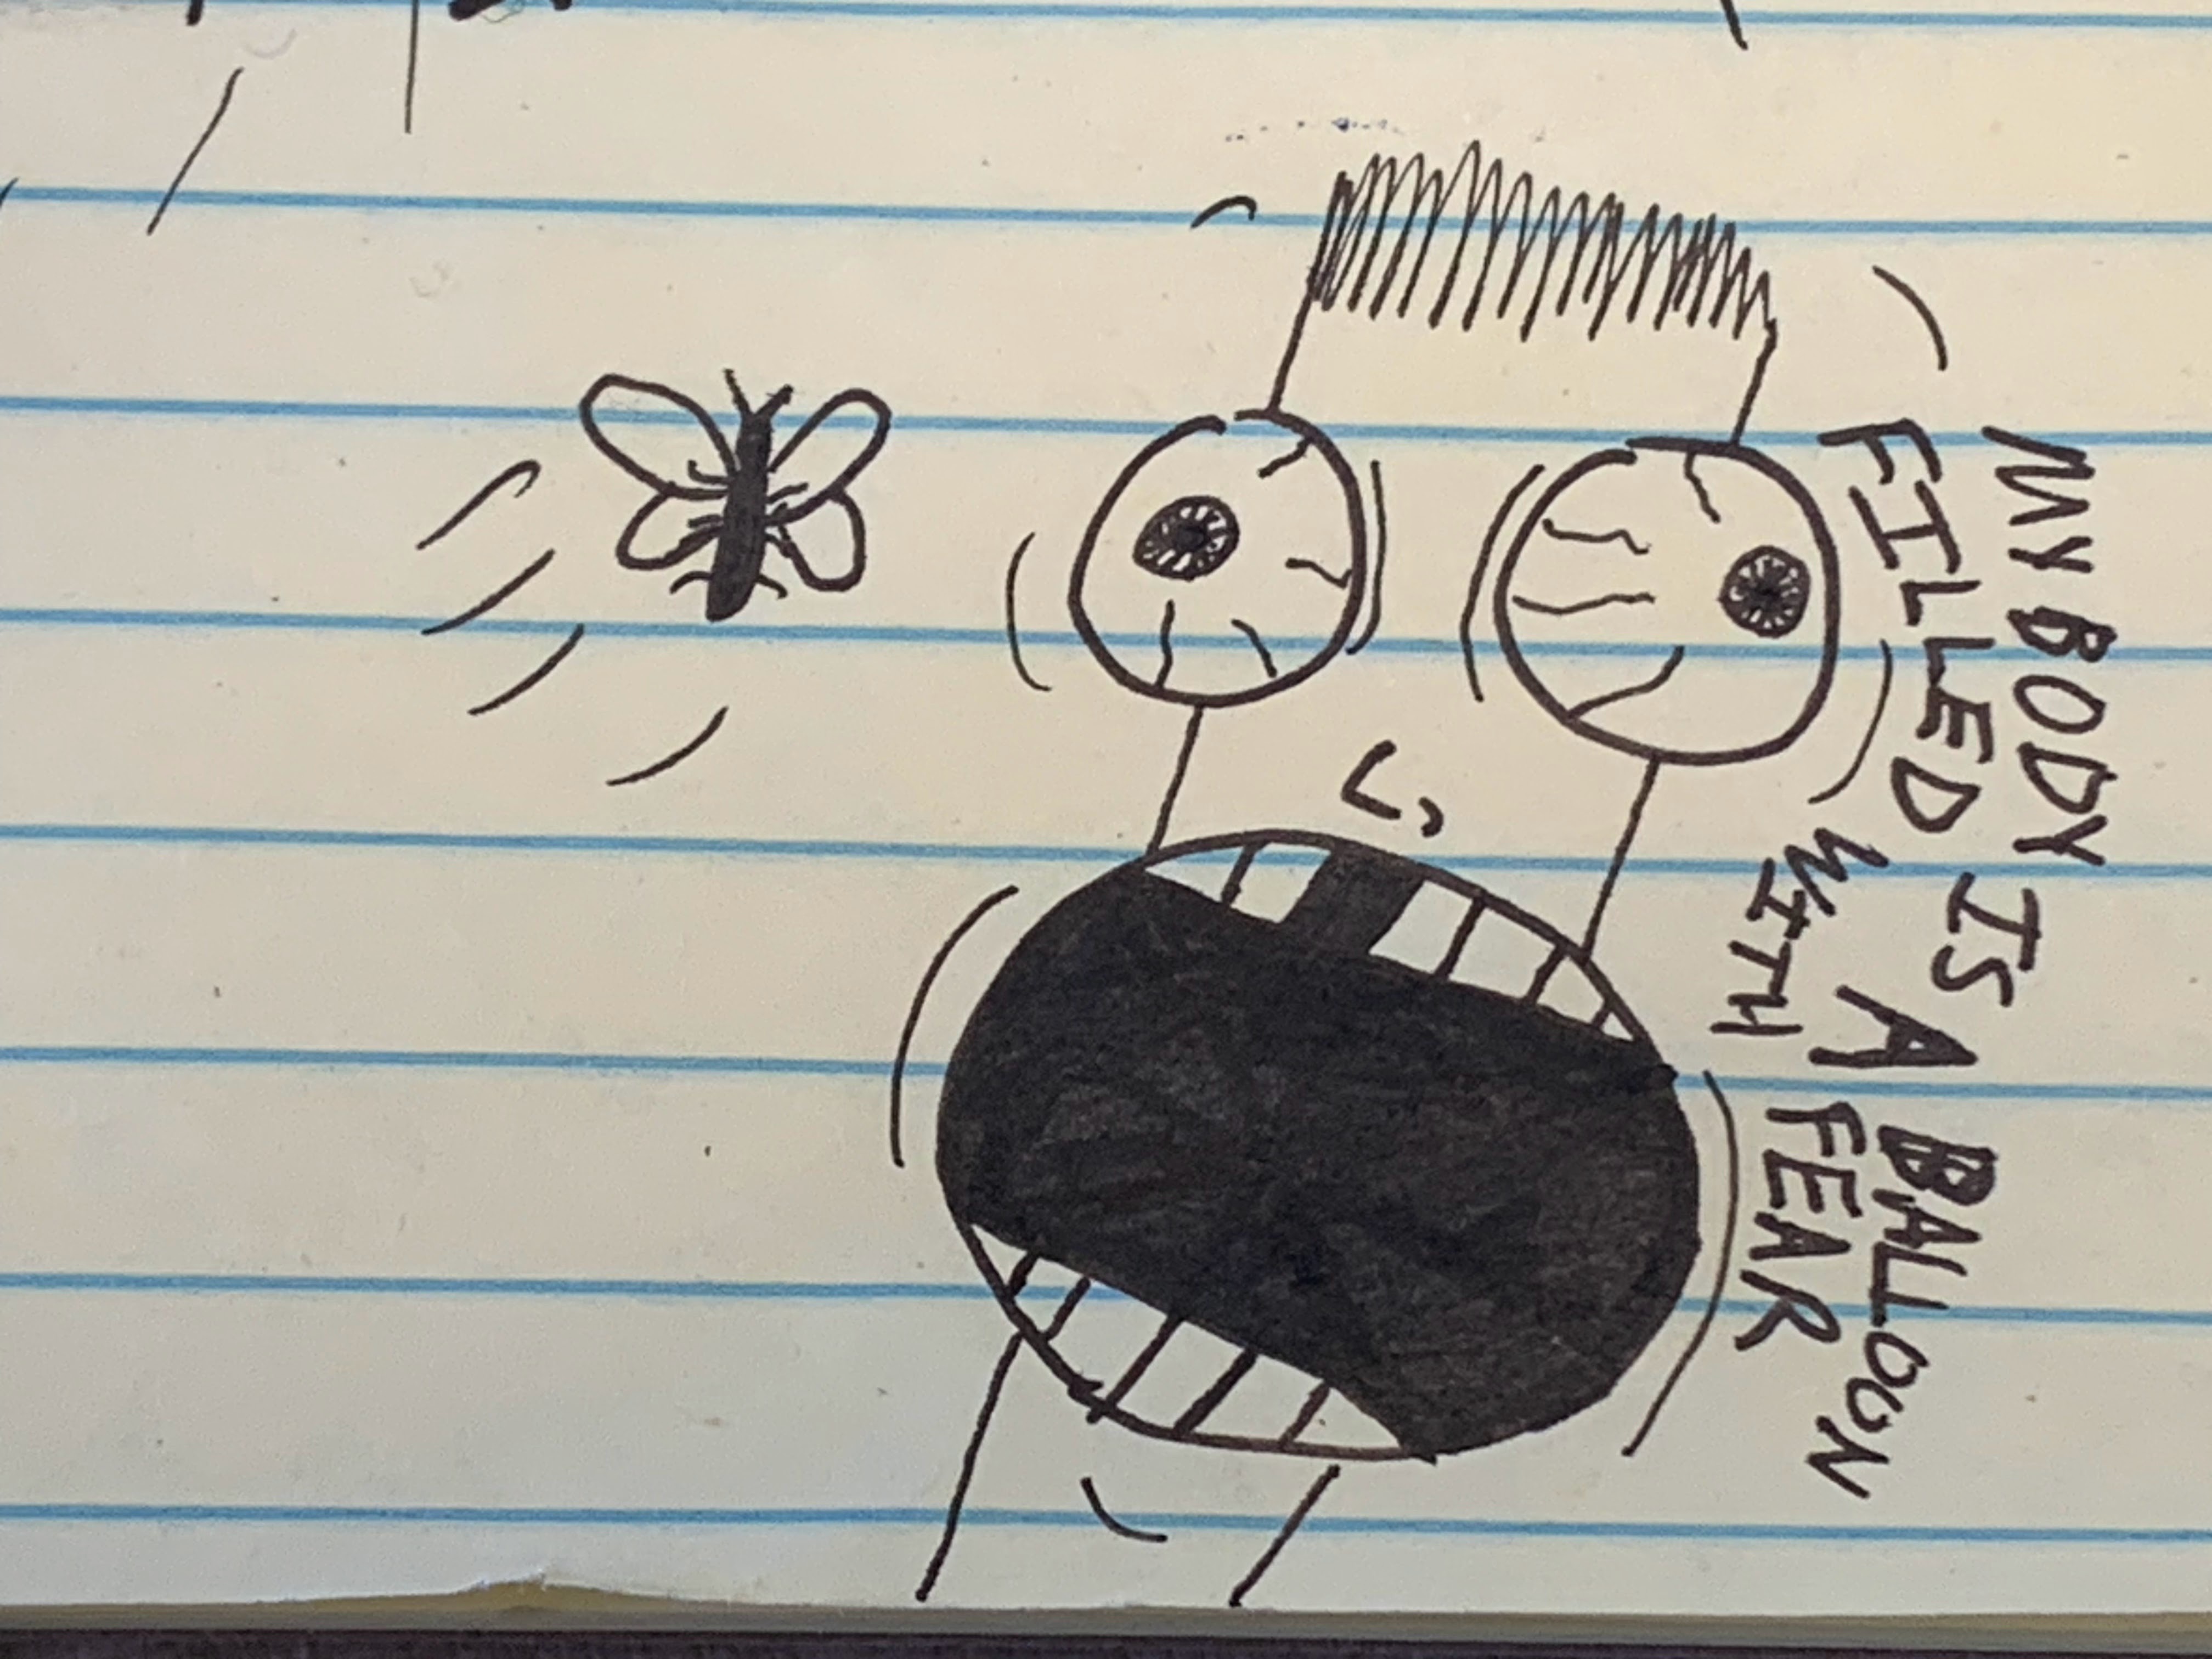 MY BODY IS A BALLOON
FILLED WITH FEAR